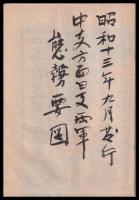 昭和十三年九月発行
中支方面日支両軍
態勢要図